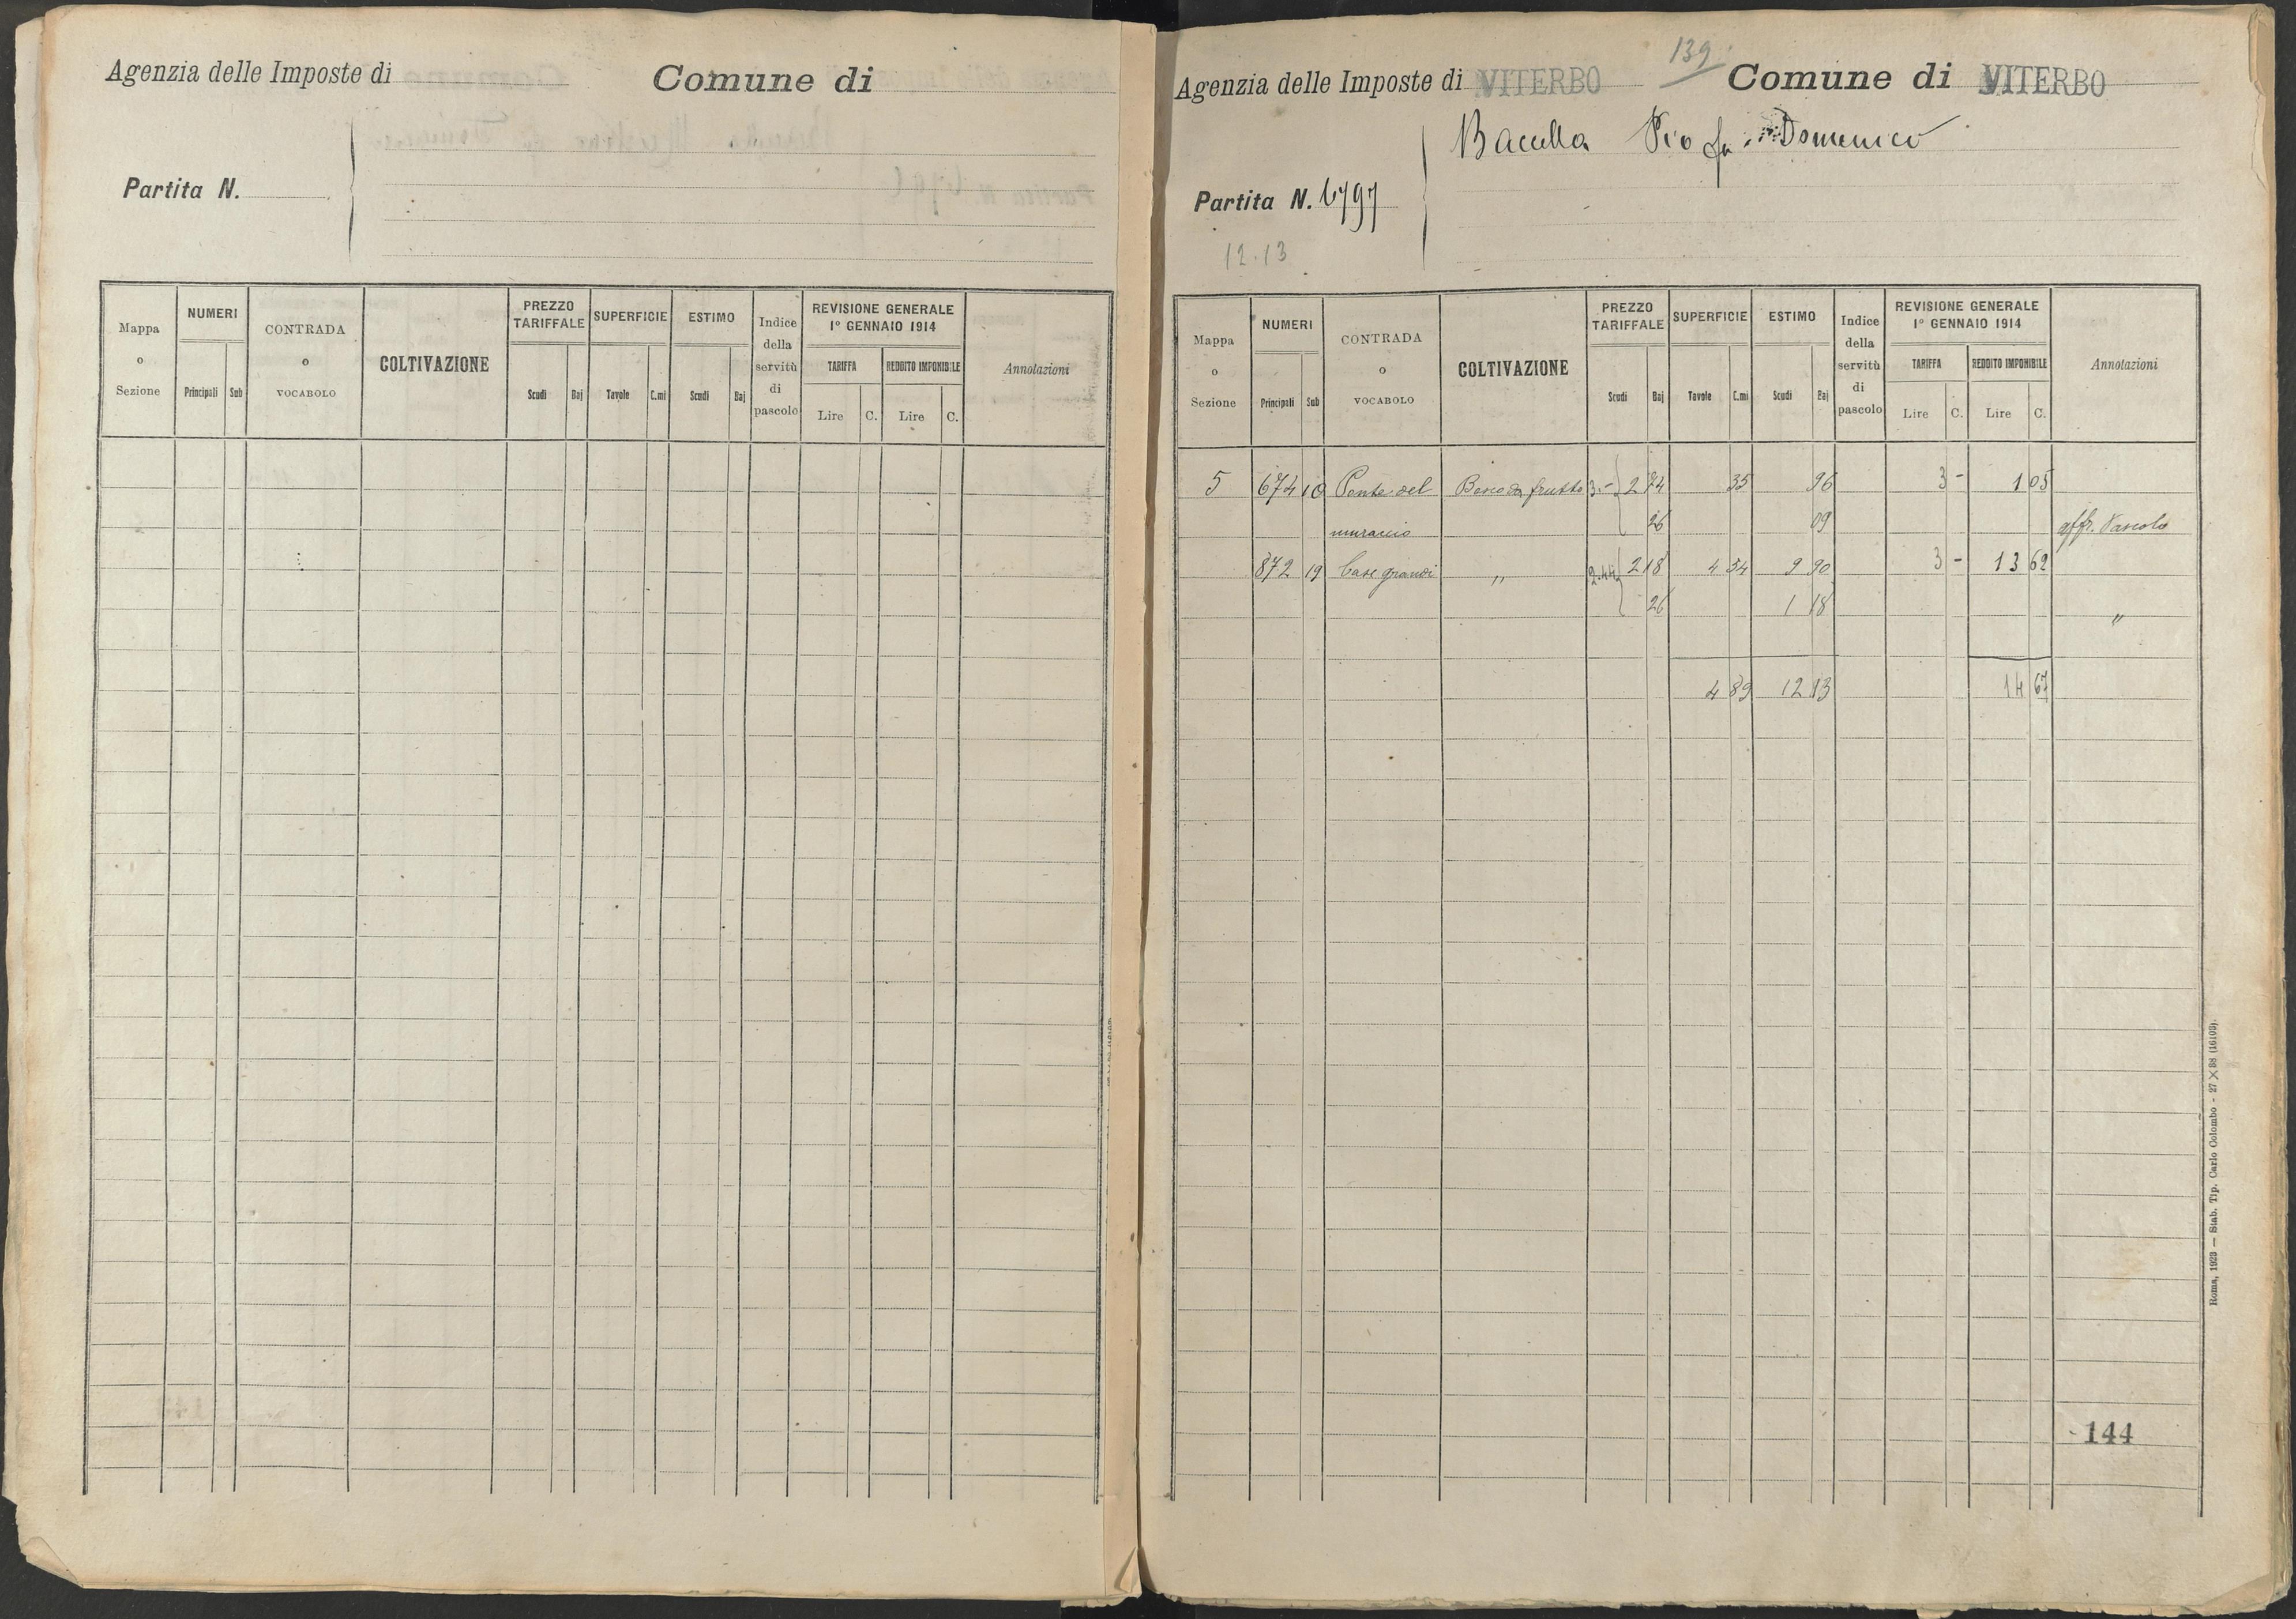 Agenzia delle Imposte di
Comune di
Partita N.
Mappa o Sezione
NUMERI
Principali Sub
CONTRADA o VOCABOLO
COLTIVAZIONE
PREZZO TARIFFALE
Scudi Baj
SUPERFICIE
Tavole C.mi
ESTIMO
Scudi Baj
Indice della servitù di pascolo
REVISIONE GENERALE 1° GENNAIO 1914
TARIFFA
Lire C.
REDDITO IMPONIBILE
Lire C.
Annotazioni
139
Agenzia delle Imposte di VITERBO Comune di VITERBO
Bacella Pio fu Domenico
Partita N. 6797
12.13
Mappa o Sezione
NUMERI
Principali Sub
CONTRADA o VOCABOLO
COLTIVAZIONE
PREZZO TARIFFALE
Scudi Baj
SUPERFICIE
Tavole C.mi
ESTIMO
Scudi Baj
Indice della servitù di pascolo
REVISIONE GENERALE 1° GENNAIO 1914
TARIFFA
Lire C.
REDDITO IMPONIBILE
Lire C.
Annotazioni
5 674 10 Ponte del Bosco da frutto 3.- 2 74 35 96 3 - 1 05
muraccio 26 09 aff. Pascolo
872 19 Case grandi " 2.44 2 18 4 54 9 90 3 - 13 62
26 1 18 "
4 89 12 13 14 67
144
Roma, 1923 — Stab. Tip. Carlo Colombo - 27 X 38 (16103).